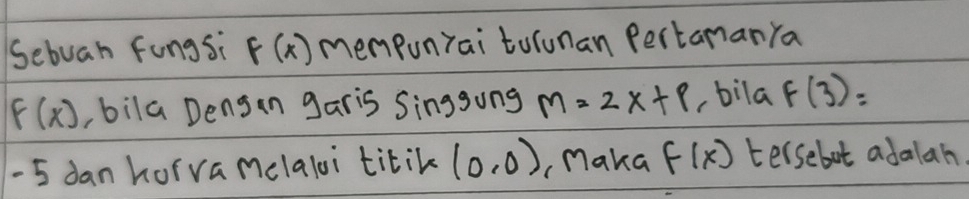 Sebuah fungsi F (x) mempunyai turunan Pertamanya
F(x), bila Dengan garis Singgung m = 2x+P, bila F(3)=
-5 dan kurva melalui titik (0,0), Maka F(x) tersebut adalah.